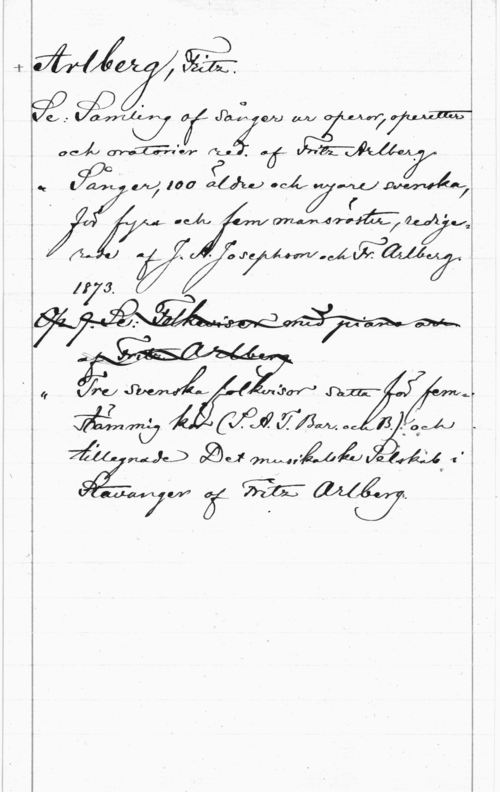 + Arlberg, Fritz.
Se: Samling af sånger ur operor, operetter
och oratorier red. af Fritz Arlberg.
" Sånger, 100 äldre och nyare svenska,
för fyra och fem mansröster, redige-
rade af J. A. Josephson och Fr. Arlberg.
1873.
Op 9. Se: Folkvisor med piano
af Fritz Arlberg
" Tre svenska folkvisor satta för fem-
stämmig kör (S. A. T. Bar. och B.) och
tillegnade Det musikalske Selskab i
Stavanger af Fritz Arlberg.